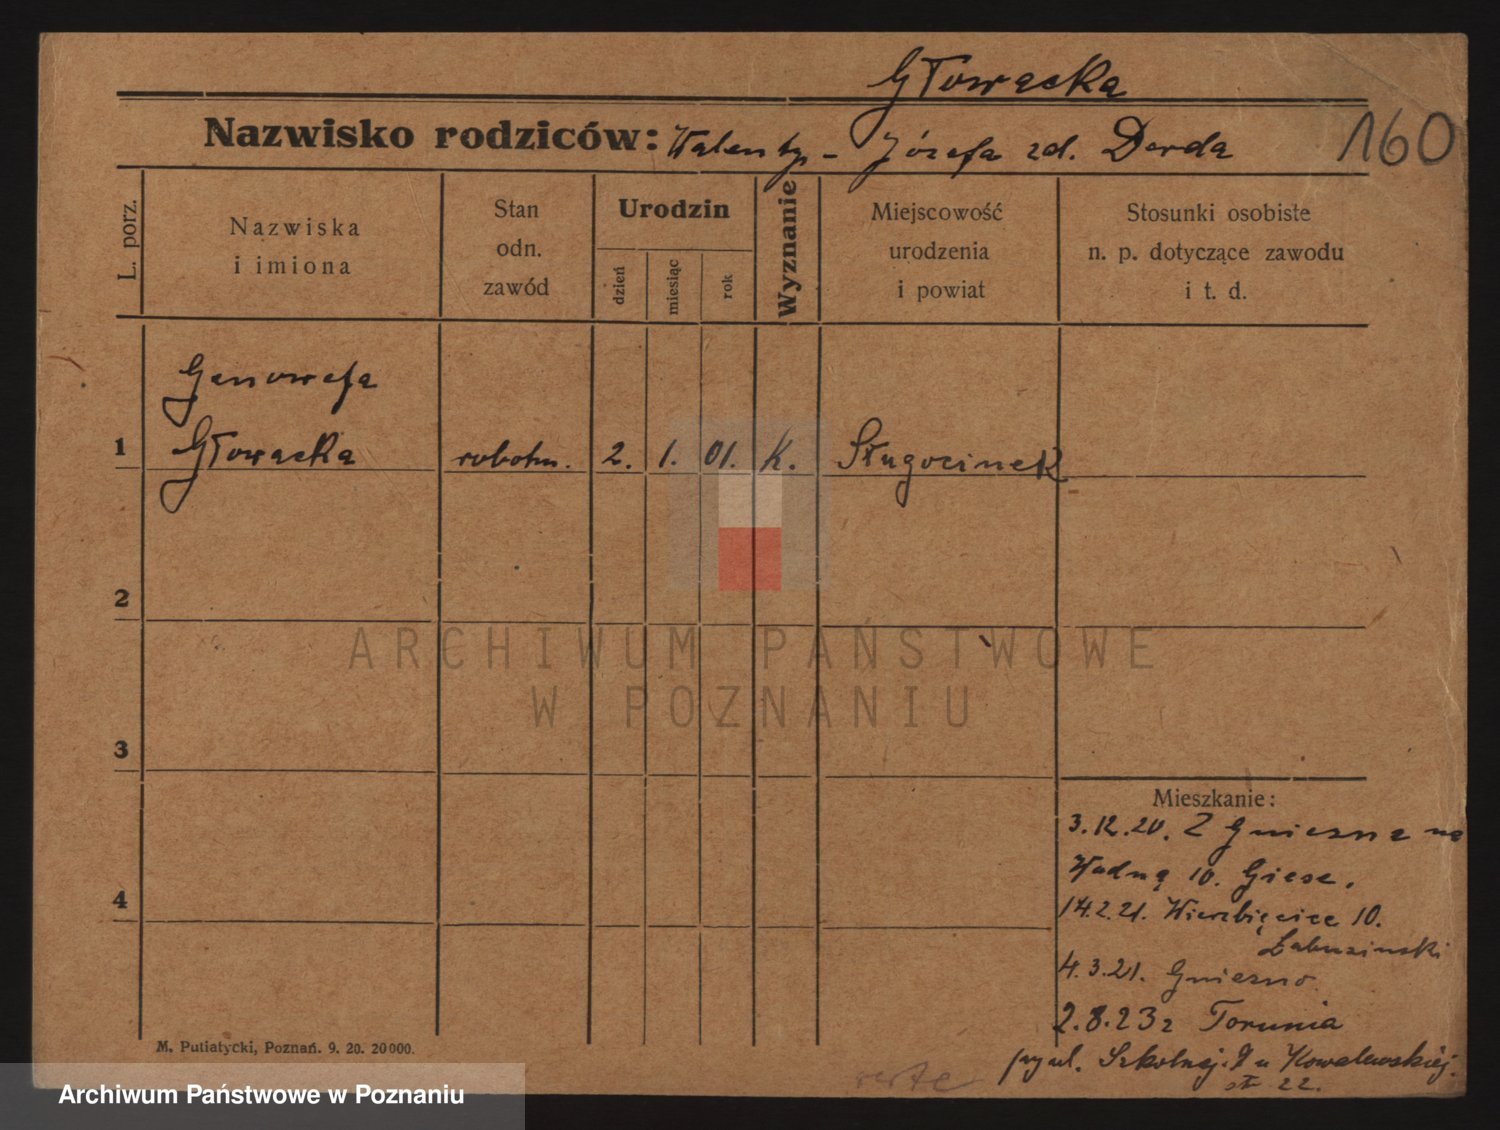 Głowacka
Nazwisko rodziców: Walenty - Józefa zd. Derda
160
L. porz.
Nazwiska
i imiona
Stan
odn.
zawód
Urodzin
dzień
miesiąc
rok
Wyznanie
Miejscowość
urodzenia
i powiat
Stosunki osobiste
n. p. dotyczące zawodu
i t. d.
Genowefa
1 Głowacka robotn. 2. 1. 01. K. Sługocinek
2
ARCHIWUM PAŃSTWOWE
W POZNANIU
3
Mieszkanie:
3.12.20. Z Gniezna na
Wodną 10. Giese.
4
14.2.21. Wierzbięcice 10.
4.3.21. Gniezno
2.8.23 z Torunia
przy ul. Szkolnej 9 u Kowalewskiej.
22.
M. Putiatycki, Poznań. 9. 20. 20000.
verte
Archiwum Państwowe w Poznaniu